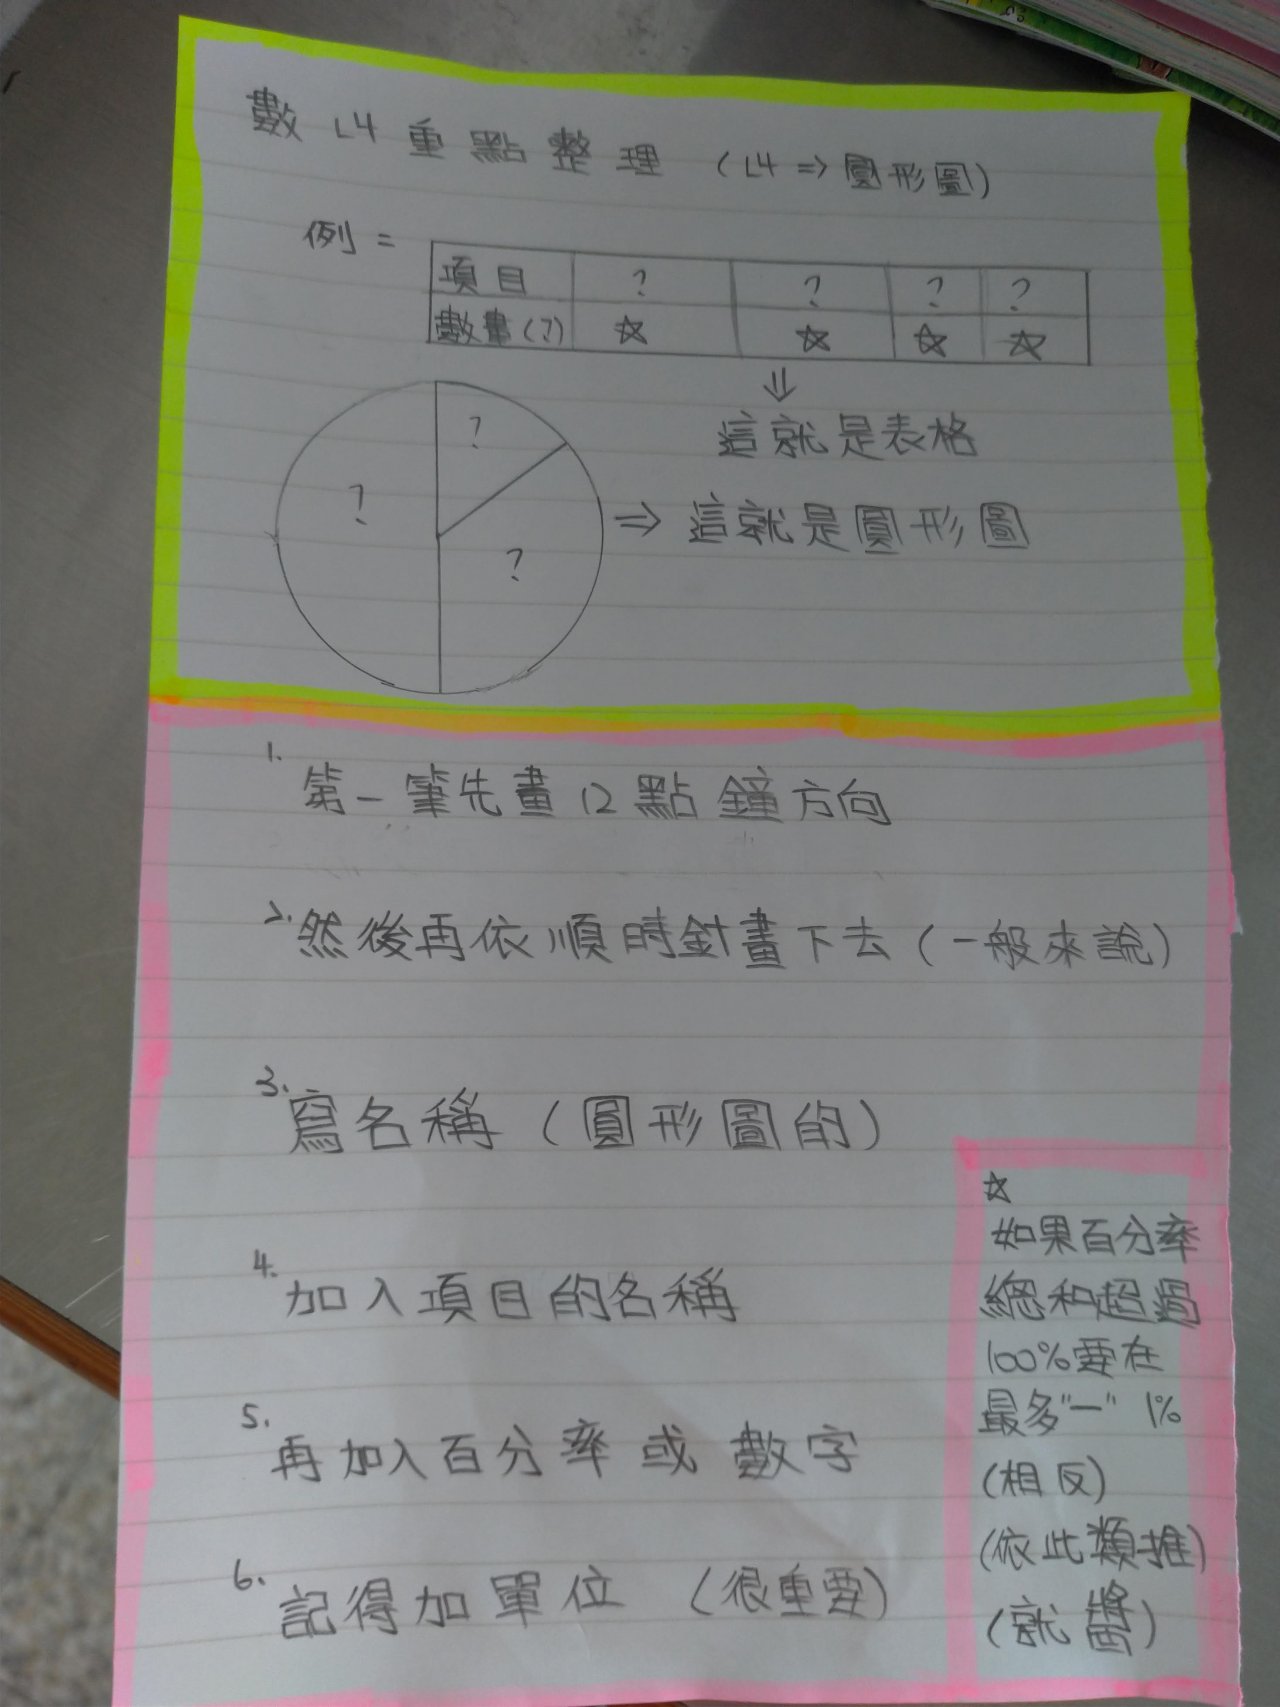 數 L4 重點整理 (L4 => 圓形圖)
例 =
項目 ? ? ? ?
數量(?) ☆ ☆ ☆ ☆
⇓
這就是表格
? ? ?
=> 這就是圓形圖
1. 第一筆先畫12點鐘方向
2. 然後再依順時針畫下去(一般來說)
3. 寫名稱(圓形圖的)
4. 加入項目的名稱
5. 再加入百分率或數字
6. 記得加單位 (很重要)
☆
如果百分率
總和超過
100%要在
最多"一" 1%
(相反)
(依此類推)
(就醬)